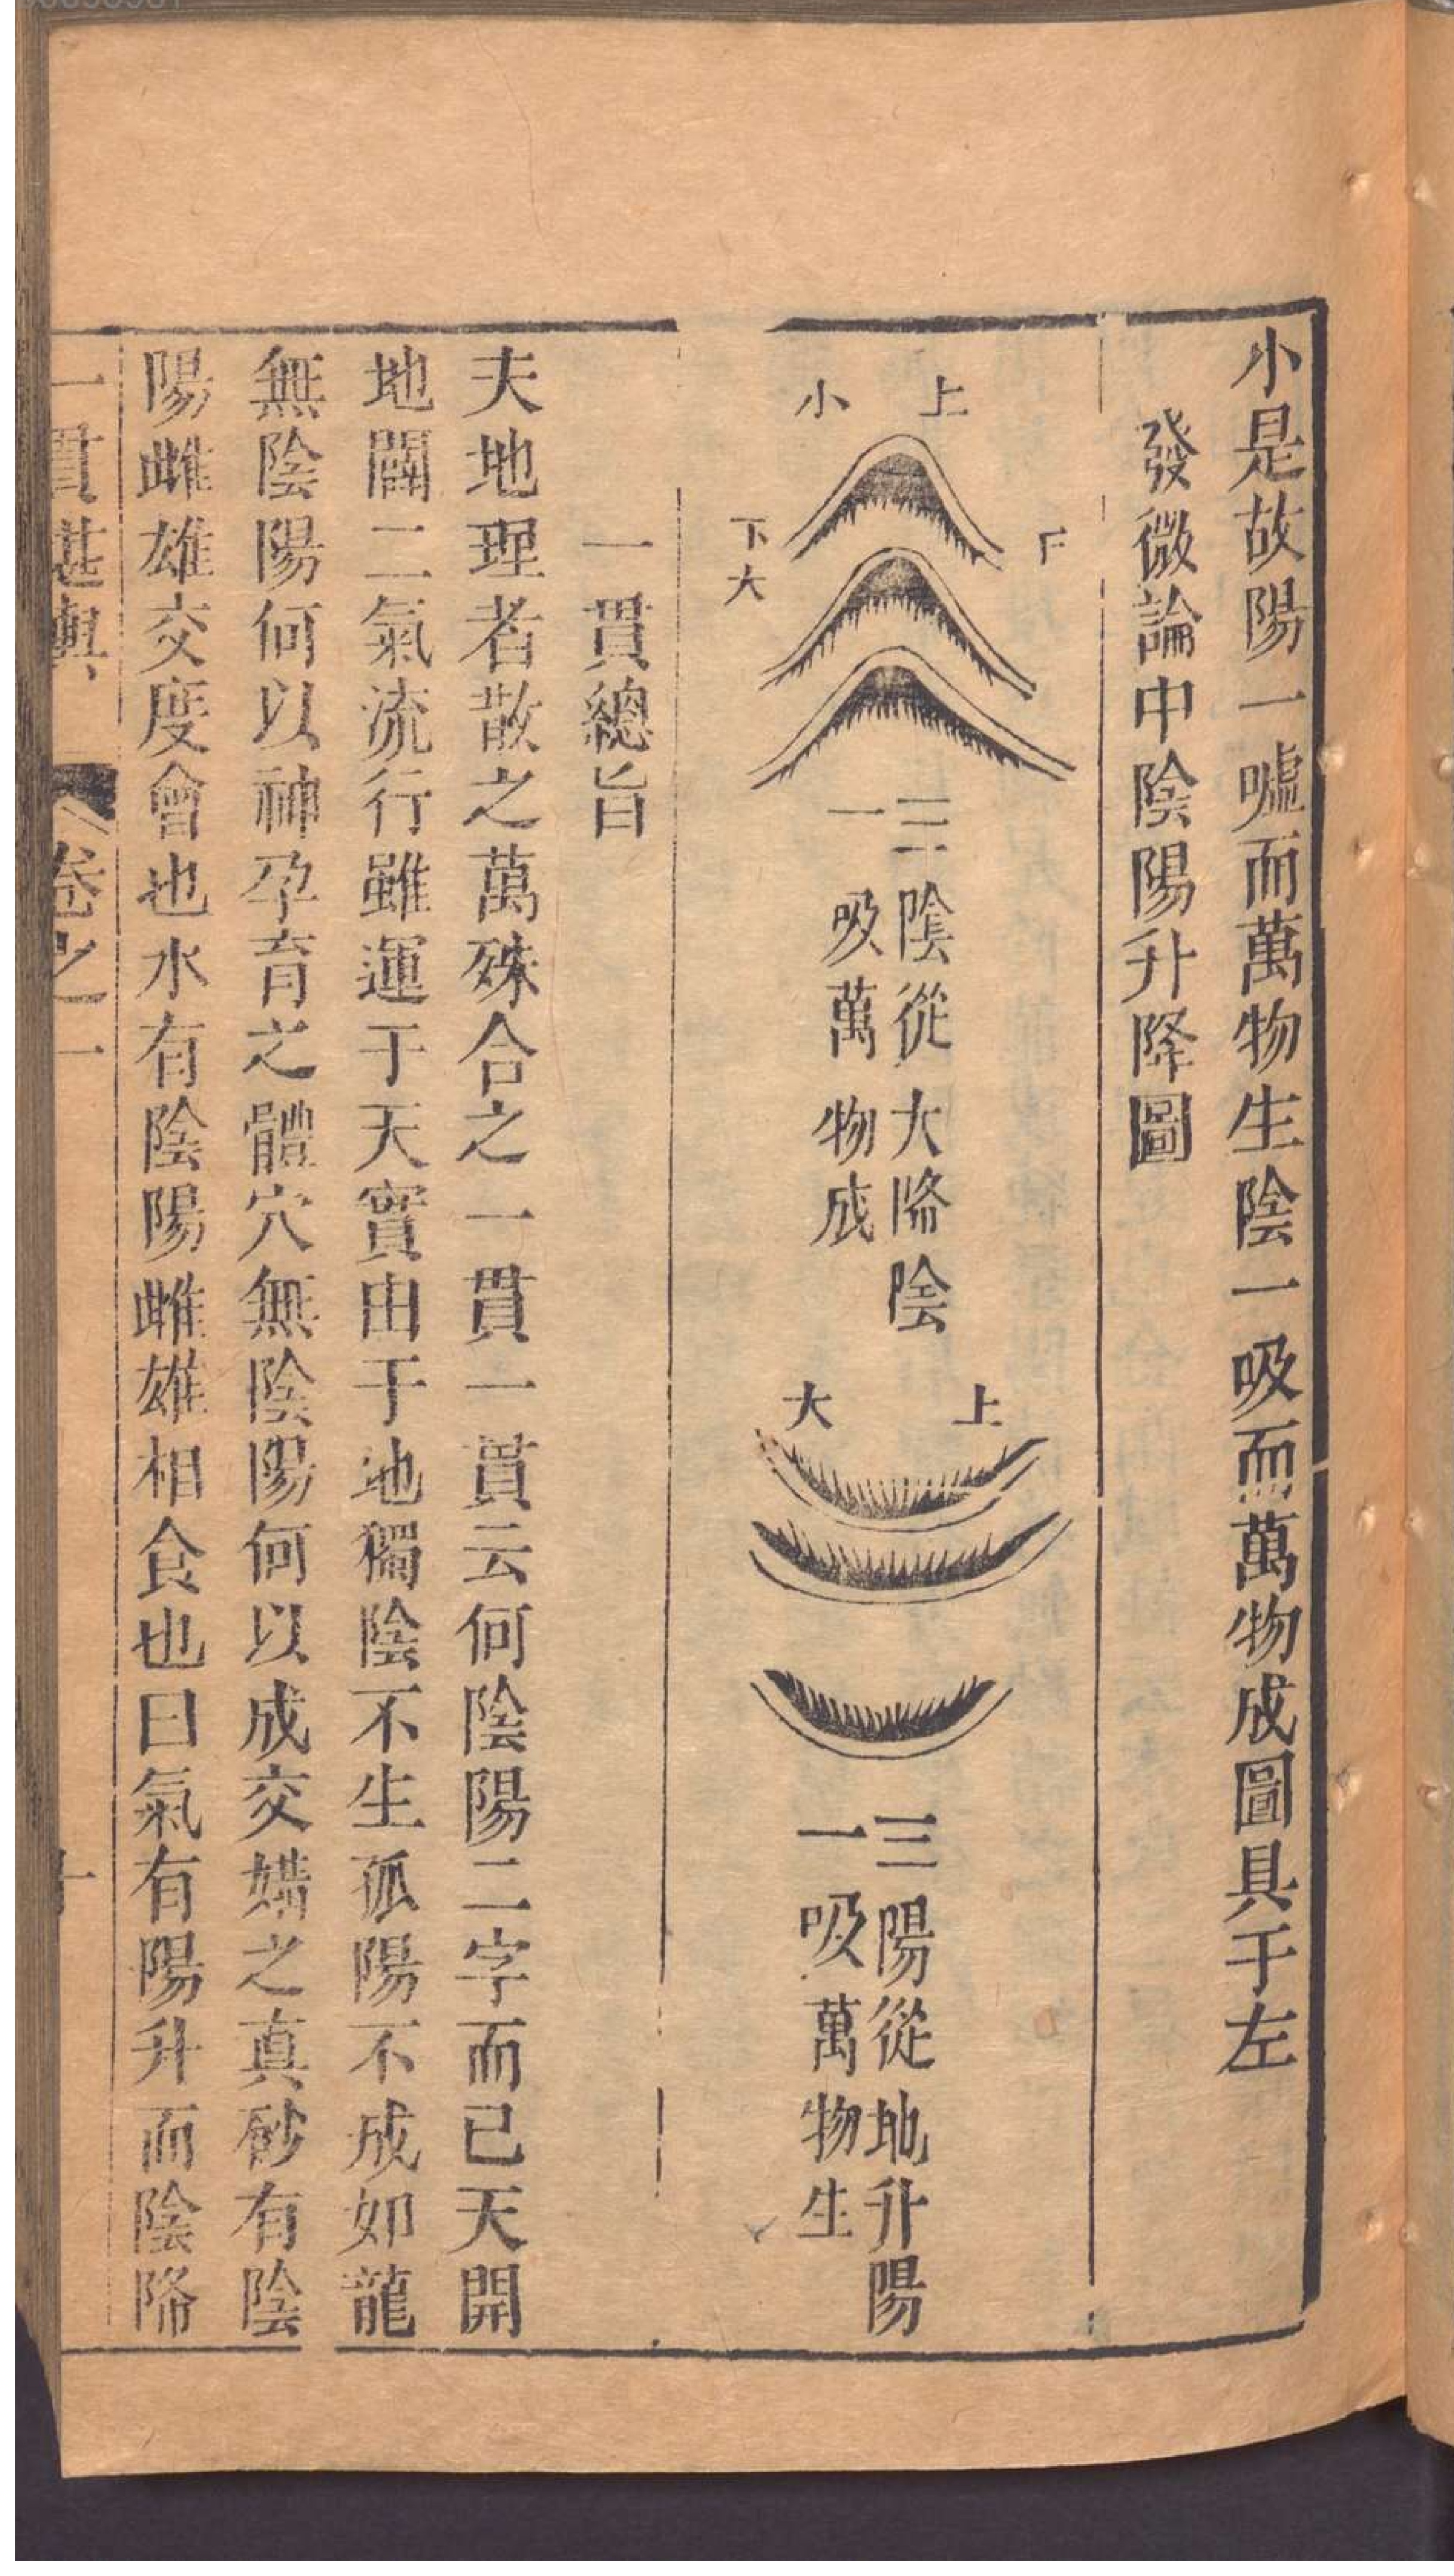 小是故陽一噓而萬物生陰一吸而萬物成圖具于左
發微論中陰陽升降圖
上
小
下
大
三陰從大降陰
一吸萬物成
上
大
三陽從地升陽
一吸萬物生
一貫總旨
夫地理者散之萬殊合之一貫一貫云何陰陽二字而已天開
地闢二氣流行雖運于天實由于地獨陰不生孤陽不成如龍
無陰陽何以神孕育之體穴無陰陽何以成交媾之真砂有陰
陽雌雄交度會也水有陰陽雌雄相食也曰氣有陽升而陰降
一貫堪輿
卷之一